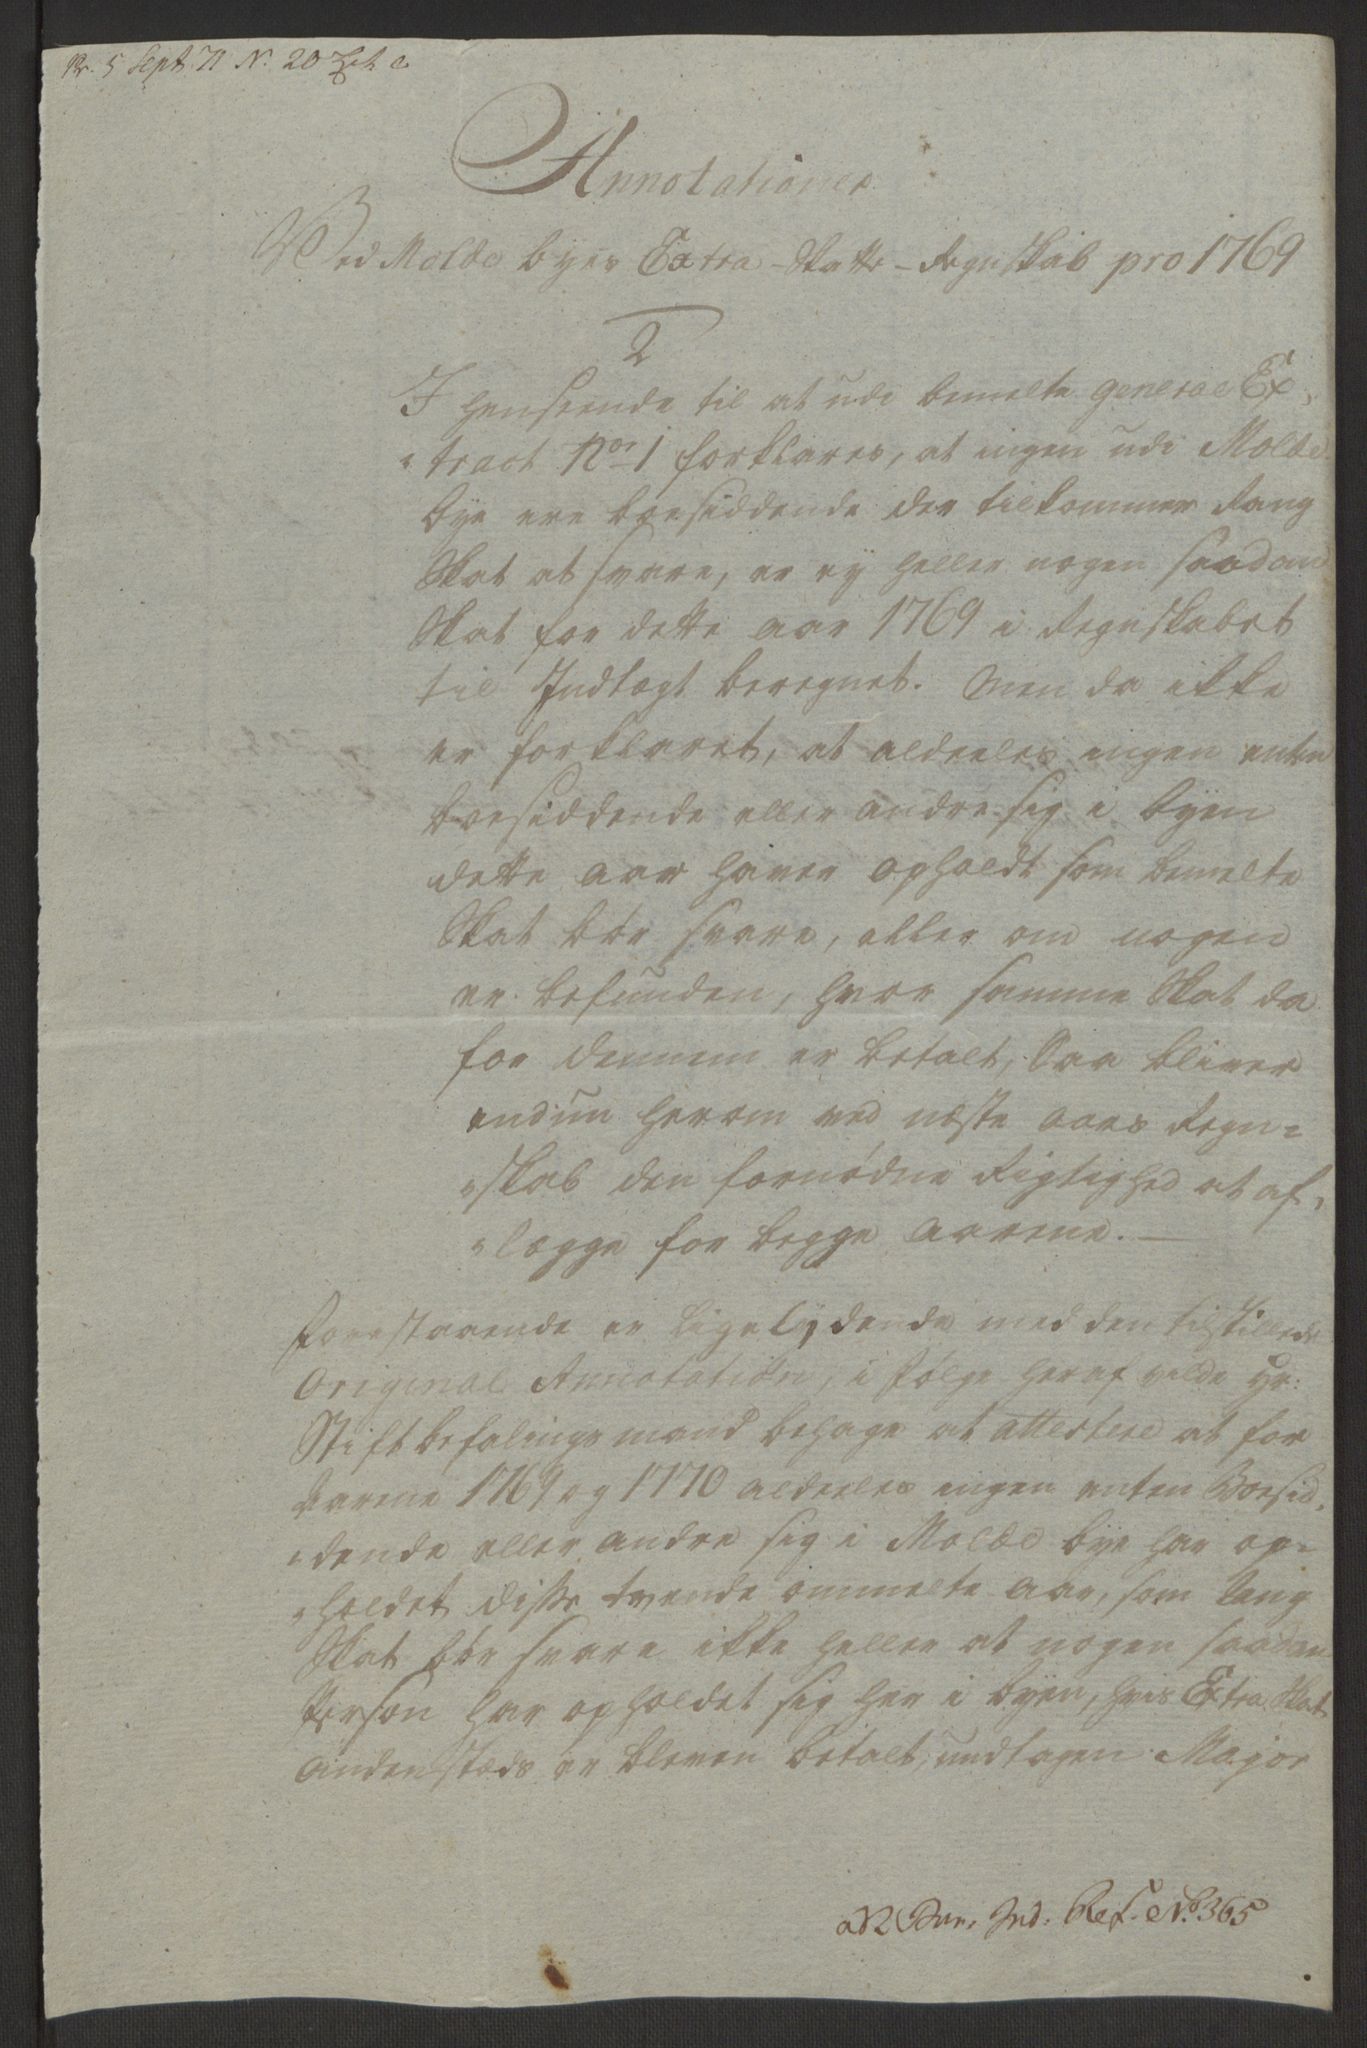 Pr. 5 Sept. 71 N. 20
Annotationer
Ved Molde byes Extra-Skatte-Regnskab pro 1769
2
I henseende til at udi bemelte general Ex,
tract Nor 1 forklares, at ingen udi Molde
bye ere boesiddende der tilkommer Rang
Skat at svare, er ey heller nogen saadan
Skat for dette aar 1769 i Regnskabet
til Indtægt beregnet. Men da ikke
er forklaret, at aldeeles ingen enten
boesiddende eller andre sig i byen
dette aar haver opholdt som bemelte
Skat bør svare, eller om nogen
er befunden, hvor samme Skat da
for dennem er betalt, Saa bliver
endnu herom ved næste aars Regn=
skab den fornødne Rigtighed at af,
lægge for begge Aarene.
Forestaaende er ligelydende med den tilstillede
Original Annotation, i følge heraf vilde Hr:
Stiftbefalingsmand behage at attestere at for
Aarene 1769 og 1770 aldeeles ingen enten Boesid,
dende eller andre sig i Molde bye har op=
holdet disse tvende ommelte Aar, som Rang
Skat bør svare ikke heller at nogen saadan
Person har opholdet sig her i byen, hvis Extra Skat
andenstæds er bleven betalt, undtagen Major
Ind: Ref. No. 365